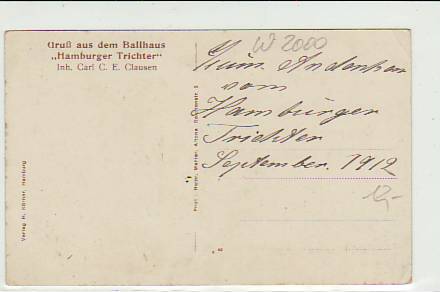 Gruß aus dem Ballhaus
„Hamburger Trichter“
Inh. Carl C. E. Clausen
W 2000
Zum Andenken
vom
Hamburger
Trichter
September. 1912
12,-
Verlag H. Körner, Hamburg